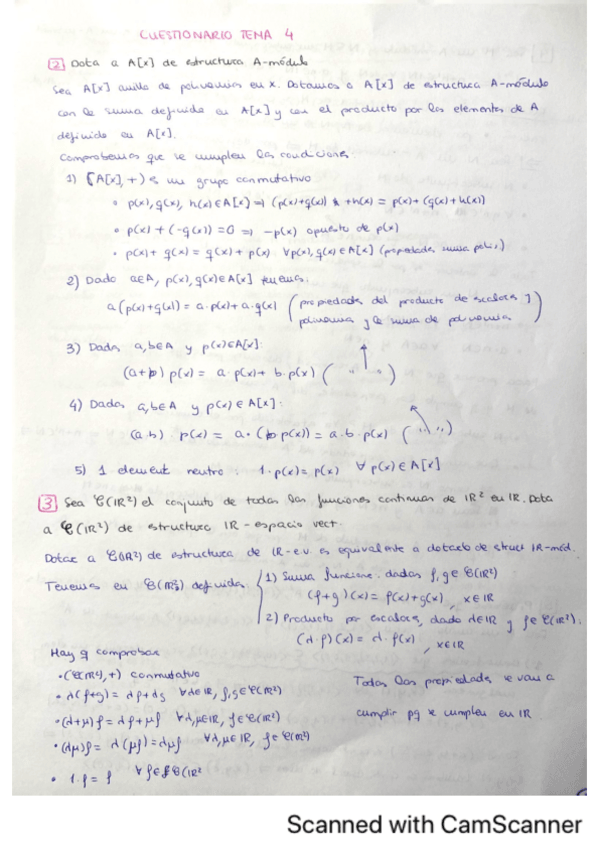 CUESTIONARIO TEMA 4
2 Dota a A[x] de estructura A-módulo
Sea A[x] anillo de polinomios en x. Dotamos a A[x] de estructura A-módulo
con la suma definida en A[x] y con el producto por los elementos de A
definido en A[x].
Comprobemos que se cumplen las condiciones:
1) (A[x], +) es un grupo conmutativo
• p(x), q(x), h(x) ∈ A[x] ⇒ (p(x)+q(x)) + h(x) = p(x) + (q(x) + h(x))
• p(x) + (-q(x)) = 0 ⇒ -p(x) opuesto de p(x)
• p(x) + q(x) = q(x) + p(x) ∀p(x), q(x) ∈ A[x] (propiedades suma polin.)
2) Dado a∈A, p(x), q(x) ∈ A[x] tenemos:
a(p(x)+q(x)) = a·p(x) + a·q(x) (propiedades del producto de escalares y
polinomios y la suma de polinomios)
3) Dados a, b∈A y p(x)∈A[x]:
(a+b) p(x) = a·p(x) + b·p(x) ( " " )
4) Dados a, b∈A y p(x) ∈ A[x]:
(a·b) · p(x) = a·(b p(x)) = a·b·p(x) ( " " )
5) 1 element neutro : 1·p(x) = p(x) ∀ p(x) ∈ A[x]
3 Sea C(IR²) el conjunto de todas las funciones continuas de IR² en IR. Dota
a C(IR²) de estructura IR-espacio vect.
Dotar a C(IR²) de estructura de IR-e.v. es equivalente a dotarlo de struct IR-mód.
Tenemos en C(IR²) definidas
1) Suma funcione. dadas f, g∈ C(IR²)
(f+g)(x) = f(x)+g(x) , x∈IR
2) Producto por escalares, dado d∈IR y f∈ C(IR²).
(d·f)(x) = d·f(x) , x∈IR
Hay q comprobar
• (C(IR²),+) conmutativo
• λ(f+g) = λf+λg ∀λ∈IR, f,g∈C(IR²)
• (λ+μ)f = λf+μf ∀λ,μ∈IR, f∈C(IR²)
• (λμ)f = λ(μf) = λμf ∀λ,μ∈IR, f∈C(IR²)
• 1·f = f ∀f∈C(IR²
Todas las propiedades se van a
cumplir pq se cumplen en IR.
Scanned with CamScanner